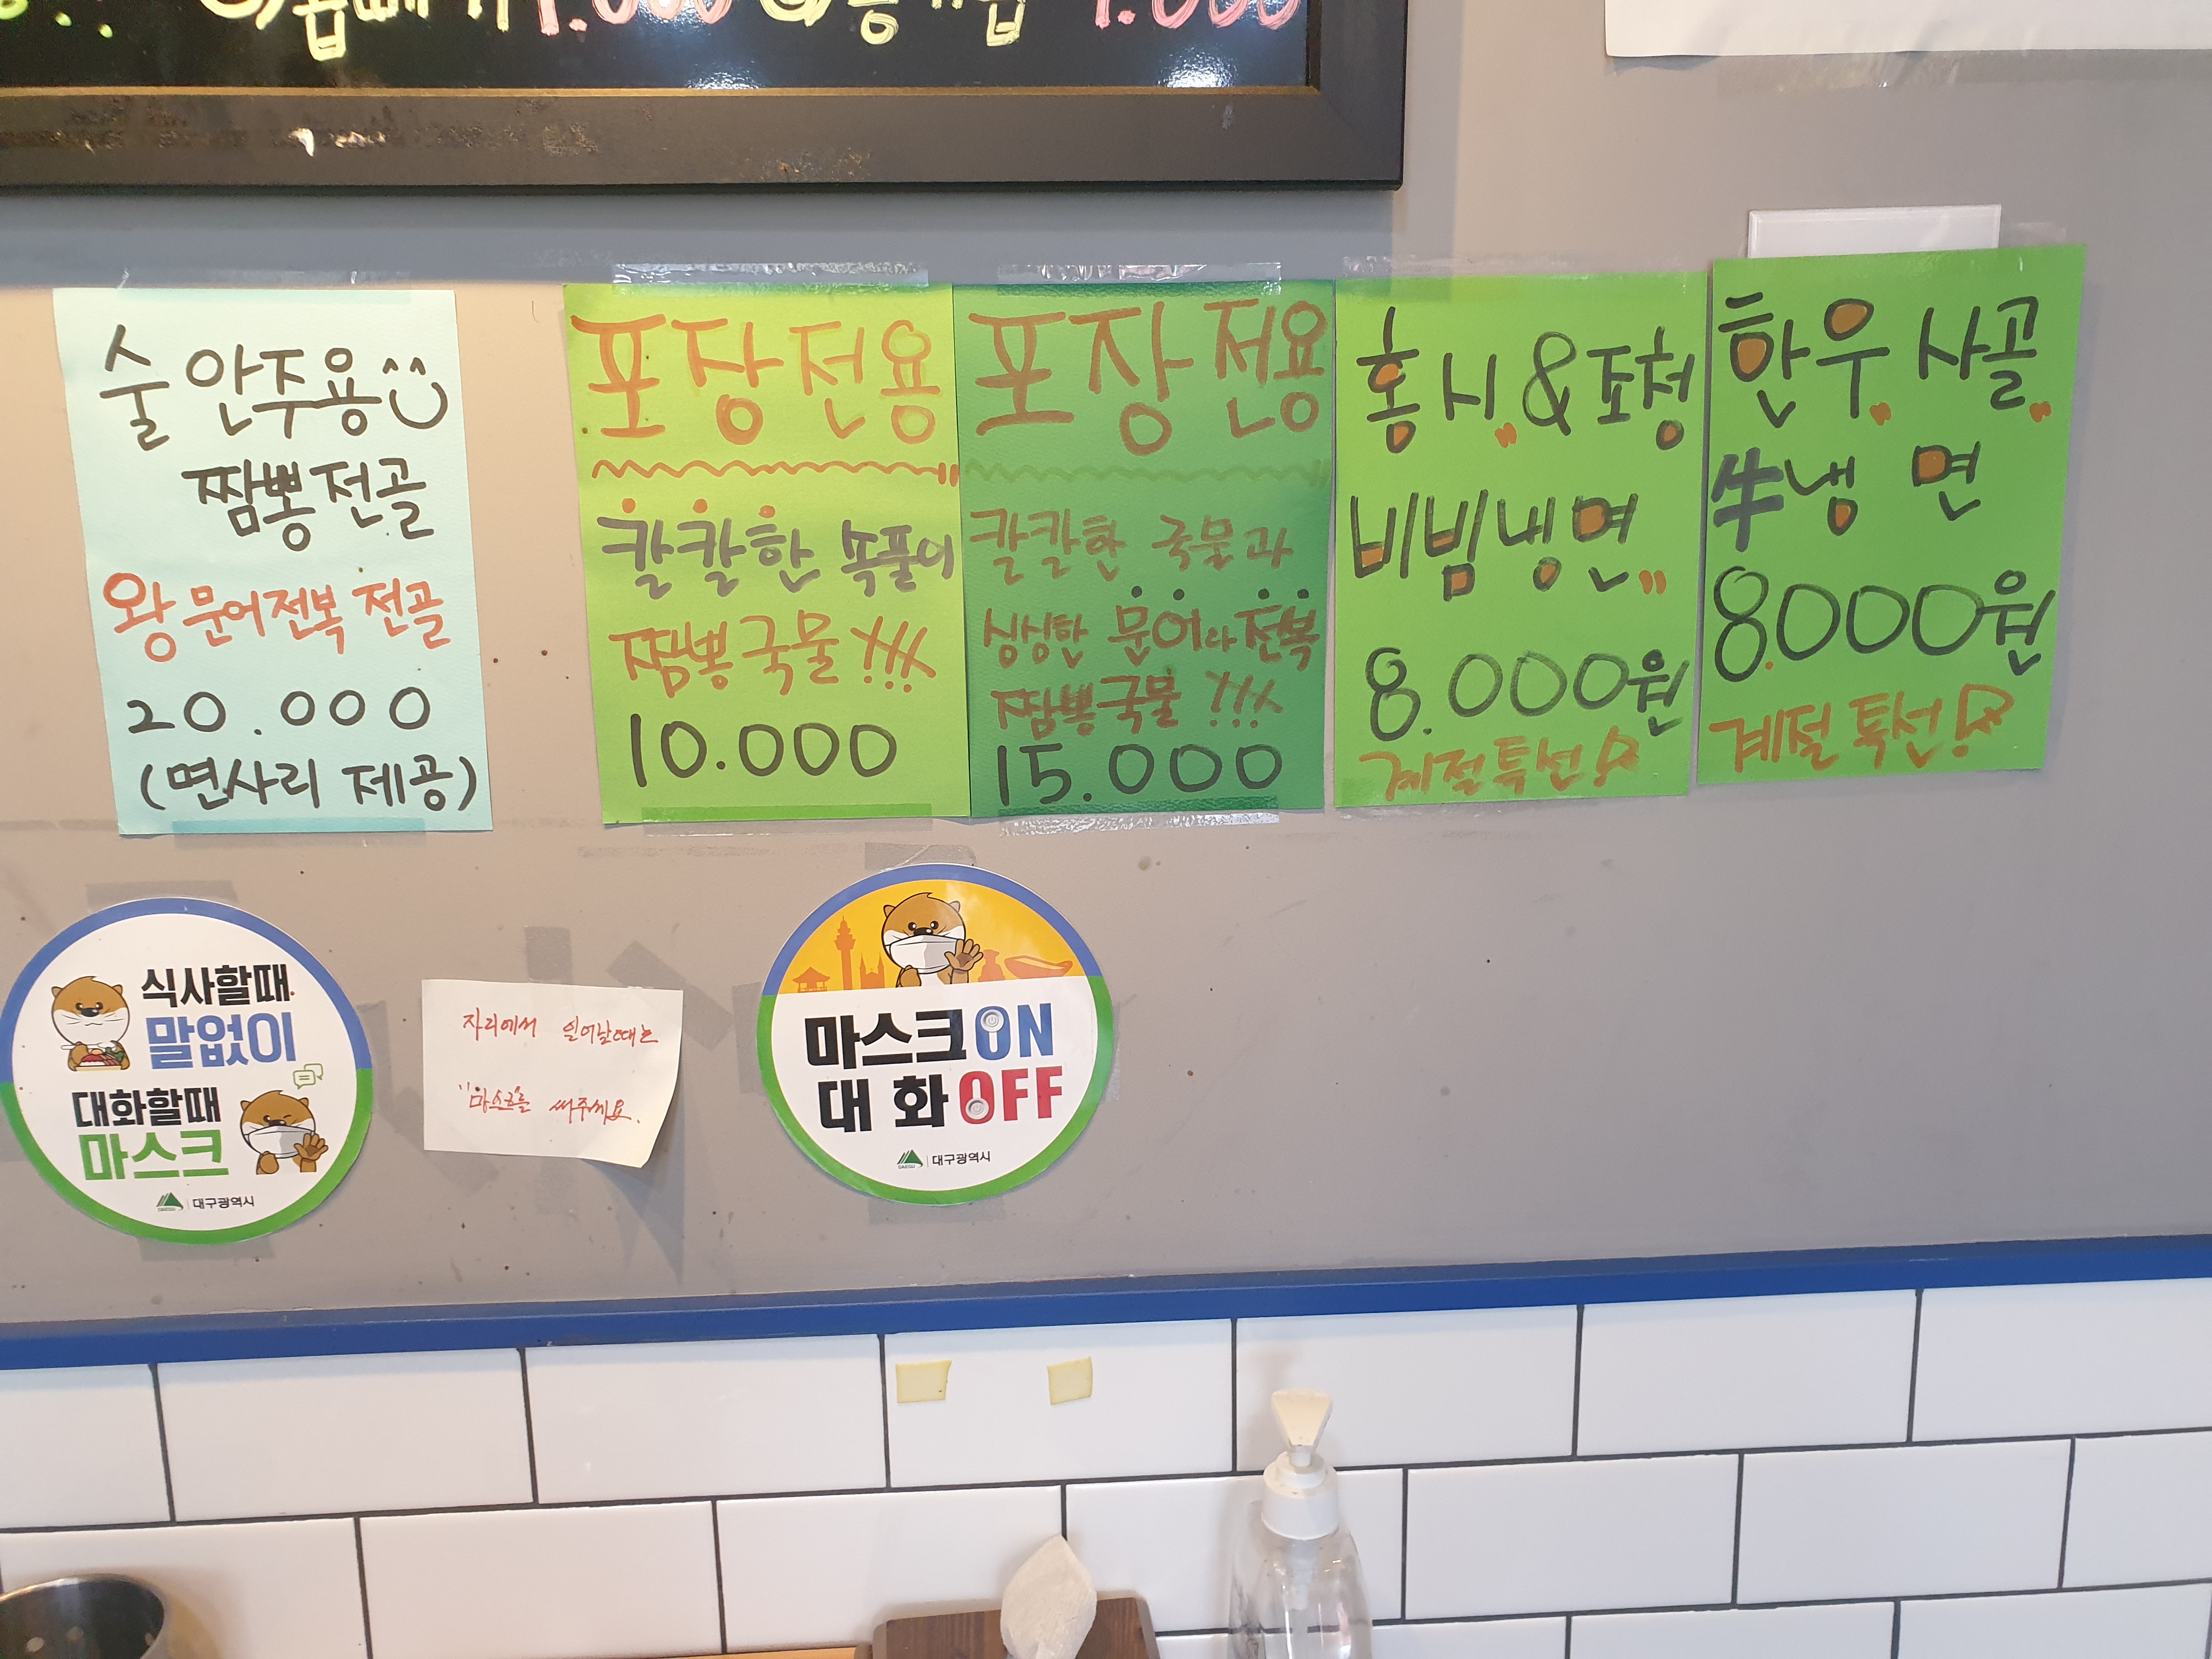 곱빼기 1.000
공기밥 1.000
술 안주용
짬뽕전골
왕 문어전복 전골
20.000
(면사리 제공)
포장전용
칼칼한 속풀이
짬뽕국물!!!
10.000
포장전용
칼칼한 국물과
싱싱한 문어나전복
짬뽕국물!!!
15.000
홍시&조청
비빔냉면
8.000원
계절특선!
한우 사골
牛냉면
8.000원
계절특선!
식사할때
말없이
대화할때
마스크
대구광역시
자리에서 일어날때는
"마스크를 써주세요.
마스크ON
대화OFF
대구광역시